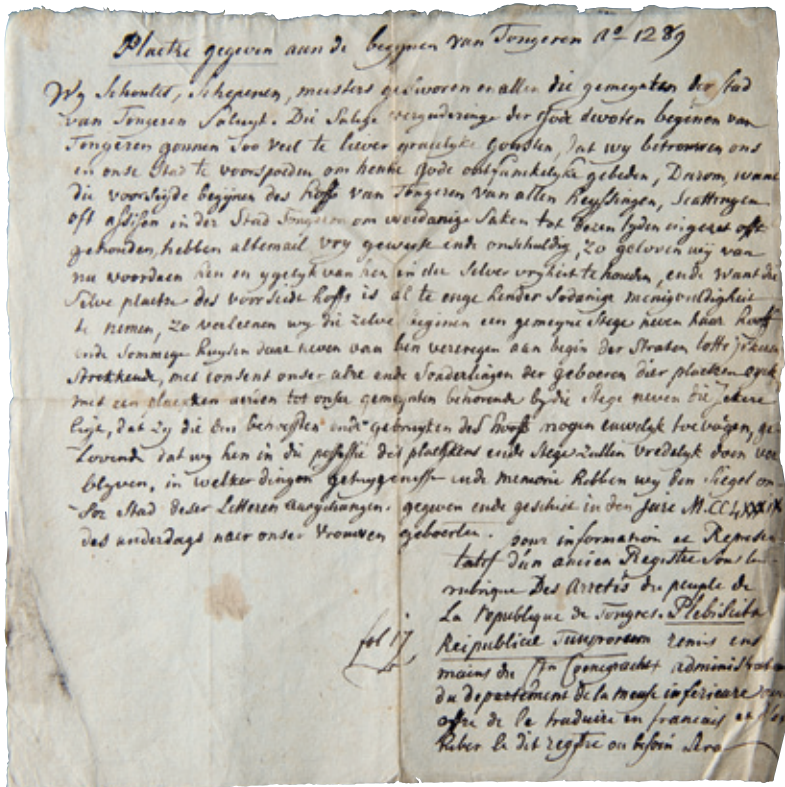 Plaetze gegeven aan de begijnen van Tongeren Ao 1289
Wij Schoutet, Schepenen, meesters gesworen en allen die gemeynten der stad
van Tongeren Saluyt. Die Salige vergaderinge der Gode devoten beginen van
Tongeren gonnen Soo veil te liever gracelyke gonsten, dat wy betrouwen ons
en onse Stad te voorspoeden om henne Gode ontfankelyke gebeden, Darom, want
die voorsijde begijnen des hoffs van Tongeren van allen heyssingen, Scattingen
oft assisen in der Stad Tongeren om woedanige Saken tot dezen tyden ingezet oft
gehouden, hebben altemail vry geweest ende onschuldig, zo geloven wij van
nu voordaen hen en ygelyk van hen in die Selver vryheit te houden, ende want die
Selve plaetse des voorseide hoffs is al te enge hender Sodanige menigvuldigheit
te nemen, zo verleenen wy die zelve beginen een gemeyne Stege neven haar hooff
ende Sommege huysen daar neven van hen vercregen aan begin der Straten
Strekkende, met consent onser alre ende Sonderlingen der geboeren dier plaetzen
met een plaexken aerien tot onse gemeynten behorende by die Stege neven die
Lige, dat zy die ten bercoffen ende gebruyken des hooff mogen euwelyk toevoegen, ge-
Lovende dat wy hen in die possessie des plaetskens ende Stege zullen vredelyk doen ver
blyven, in welker dingen getuygenisse ende memorie hebben wy den Siegel on-
ser Stad deser Letteren aengehangen. gegeven ende geschiet in den jare M.CC.LXXXIX
des anderdags naer onser Vrouwen geboorten.
pour information ce Represen-
tatif d'un ancien Registre Sous la
rubrique Des Arretés du peuple de
La Republique de Tongres. Plebiscita
Reipublicae Tungrorum remis ens
fol 17,
mains du administrat
du departement de la meuse inférieure
offre de le traduire en francais et
hiber le dit regtre ou besoin Sera